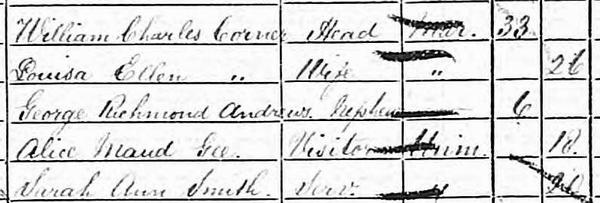 William Charles Corner Head Mar. 33
Louisa Ellen " Wife " 26
George Richmond Andrews Nephew 6
Alice Maud Gee. Visitor Unm. 18
Sarah Ann Smith. Serv.